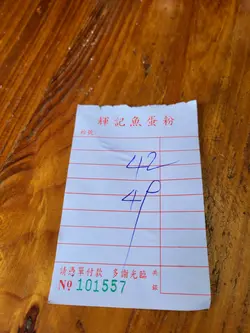 輝記魚蛋粉
42
49
請憑單付款 多謝光臨
№ 101557